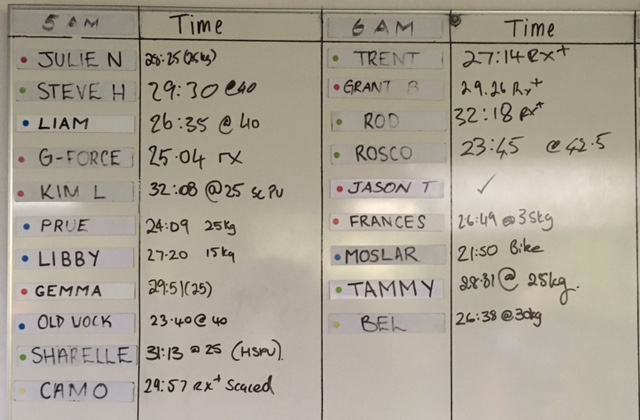 5 AM Time 6 AM Time
JULIE N 28:25 (25kg) TRENT 27:14 Rx+
STEVE H 29:30 @40 GRANT B 29.26 Rx+
LIAM 26:35 @ 40 ROD 32:18 Rx+
G-FORCE 25.04 rx ROSCO 23:45 @ 42.5
KIM L 32:08 @ 25 SC PU JASON T ✓
PRUE 24:09 25kg FRANCES 26:49 @ 35kg
LIBBY 27.20 15kg MOSLAR 21:50 Bike
GEMMA 29:51 (25) TAMMY 28:31 @ 25kg.
OLD 23.40 @ 40 BEL 26:38 @ 30kg
SHARELLE 31:13 @ 25 (HSPU)
CAMO 29:57 Rx+ Scaled